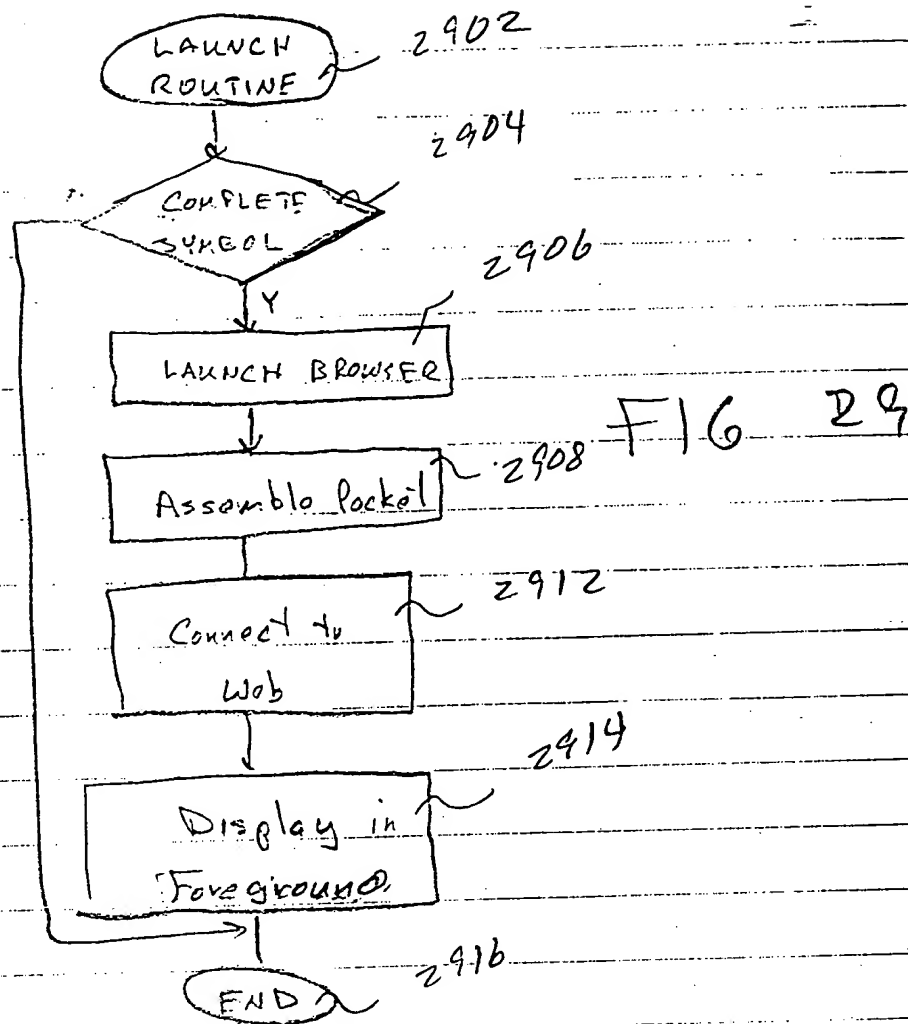 LAUNCH
ROUTINE
2902
2904
COMPLETE
SYMBOL
Y
2906
LAUNCH BROWSER
FIG 29
2908
Assemble Packet
2912
Connect to
Web
2914
Display in
Foreground
2916
END